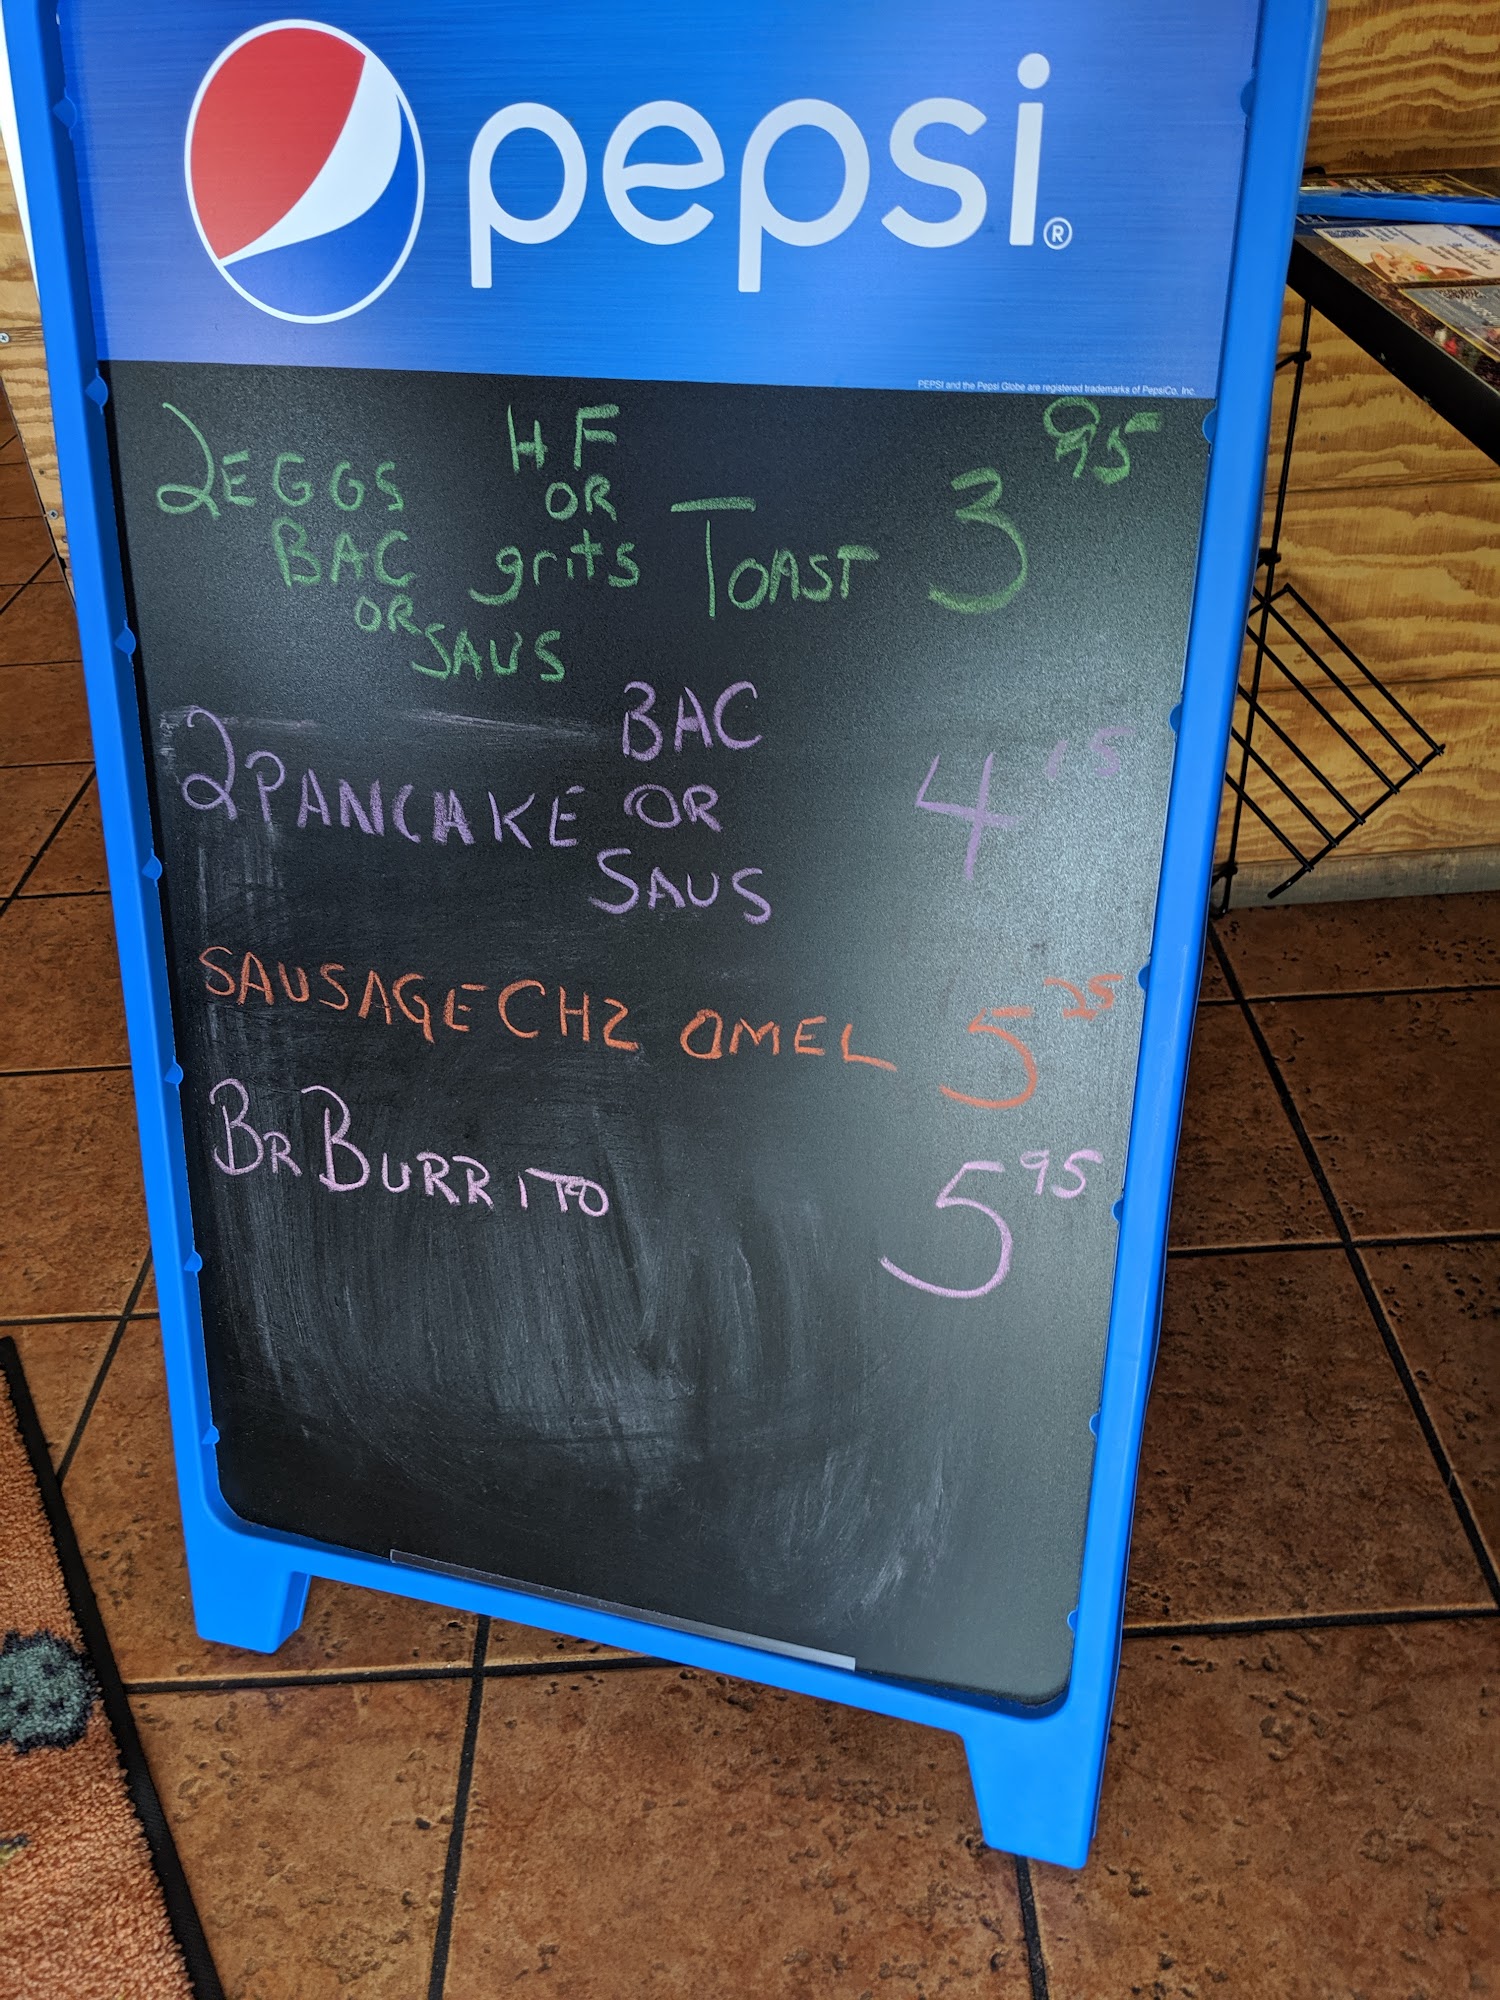 pepsi®
PEPSI and the Pepsi Globe are registered trademarks of PepsiCo, Inc.
2 EGGS HF TOAST 3 95
BAC OR
OR grits
SAUS
2 PANCAKE BAC 4 15
OR
SAUS
SAUSAGE CHZ OMEL 5 25
BR BURRITO 5 95